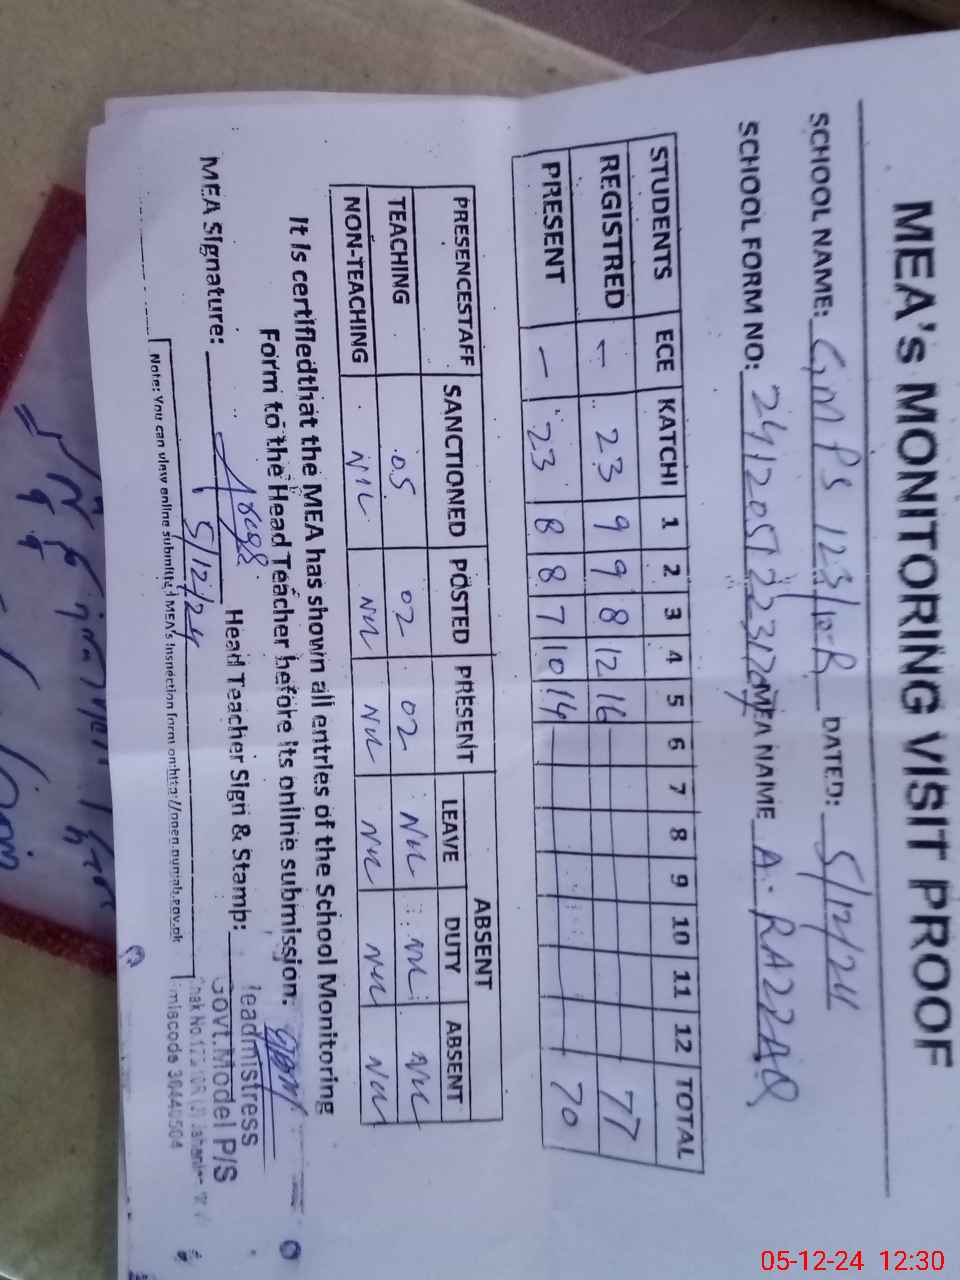 MEA's MONITORING VISIT PROOF
SCHOOL NAME: GMPS 123/10-R DATED: 5/12/24
SCHOOL FORM NO: MEA NAME A. RAZZAQ
STUDENTS ECE KATCHI 1 2 3 4 5 6 7 8 9 10 11 12 TOTAL
REGISTRED - 23 9 9 8 12 16 77
PRESENT - 23 8 8 7 10 14 70
PRESENCESTAFF SANCTIONED POSTED PRESENT ABSENT
LEAVE DUTY ABSENT
TEACHING 05 02 02 Nil Nil Nil
NON-TEACHING Nil Nil Nil Nil Nil Nil
It is certifiedthat the MEA has shown all entries of the School Monitoring
Form to the Head Teacher before its online submission.
MEA Signature: Head Teacher Sign & Stamp:
5/12/24
Headmistress
Govt. Model P/S
Note: You can view online submitted MEA's Inspection form on: http://open.punjab.gov.pk
05-12-24 12:30